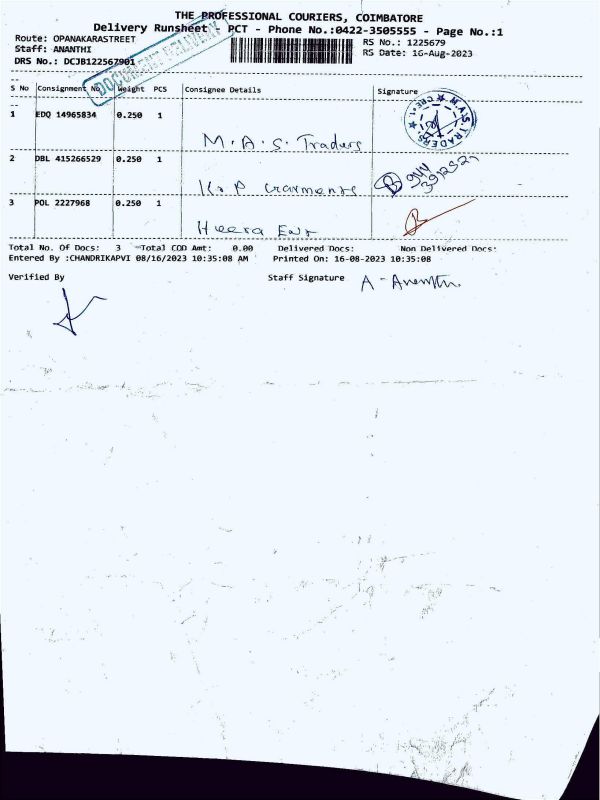 THE PROFESSIONAL COURIERS, COIMBATORE
Delivery Runsheet PCT - Phone No.:0422-3505555 - Page No.:1
Route: OPANAKARASTREET
RS No.: 1225679
Staff: ANANTHI
RS Date: 16-Aug-2023
DRS No.: DCJB122567901
DOCUMENT DELIVERY
S No Consignment No Weight PCS Consignee Details Signature
1 EDQ 14965834 0.250 1 M.A.S. Traders
M.A.S. TRADERS
2 DBL 415266529 0.250 1 K.P Garments
3 POL 2227968 0.250 1 Heera Ent
Total No. Of Docs: 3 Total COD Amt: 0.00 Delivered Docs: Non Delivered Docs:
Entered By :CHANDRIKAPVI 08/16/2023 10:35:08 AM Printed On: 16-08-2023 10:35:08
Verified By Staff Signature A - Ananthi